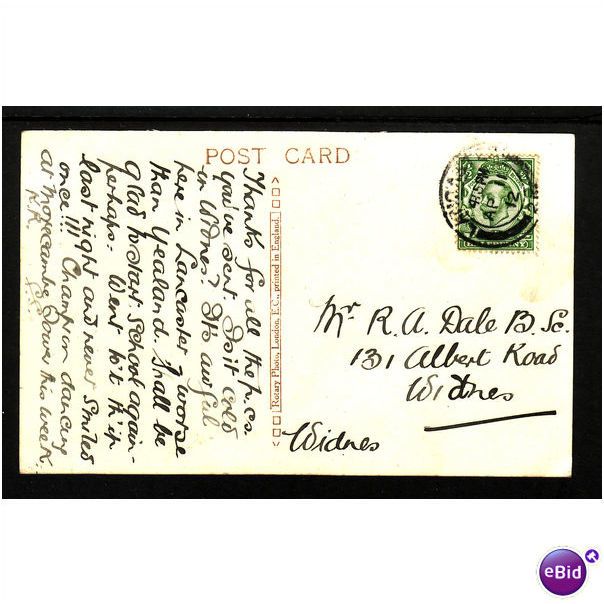 POST CARD
Thanks for all the p.cs.
you've sent. Is it cold
in Widnes? It's awful
here in Lancaster & worse
than Yealand. Shall be
glad to start school again -
perhaps. Went to t'
last night and never smiled
once!!! Champion dancing
at Morecambe Tower this week.
Rotary Photo, London, E.C., printed in England.
Mr R. A. Dale B. Sc.
131 Albert Road
Widnes
Widnes
eBid